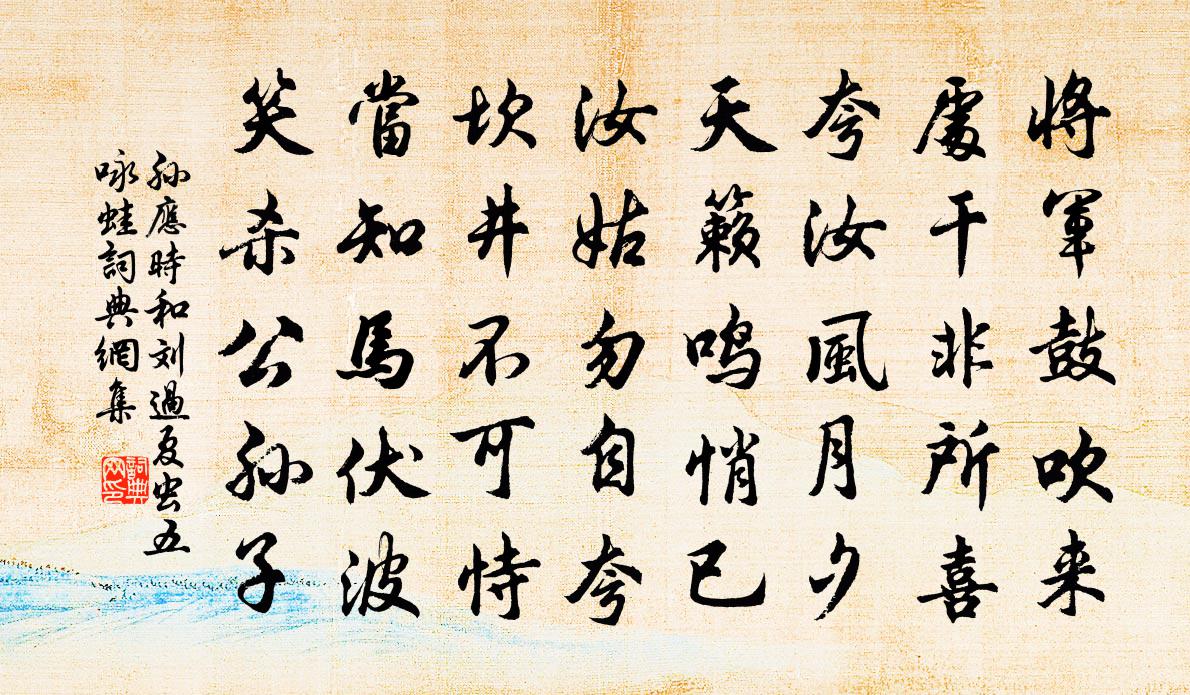 將軍鼓吹来
處干非所喜
夸汝風月夕
天籟鸣悄已
汝姑勿自夸
坎井不可恃
當知馬伏波
笑杀公孙子
孙應時和刘過夏虫五
咏蛙詞典網集
詞典网印